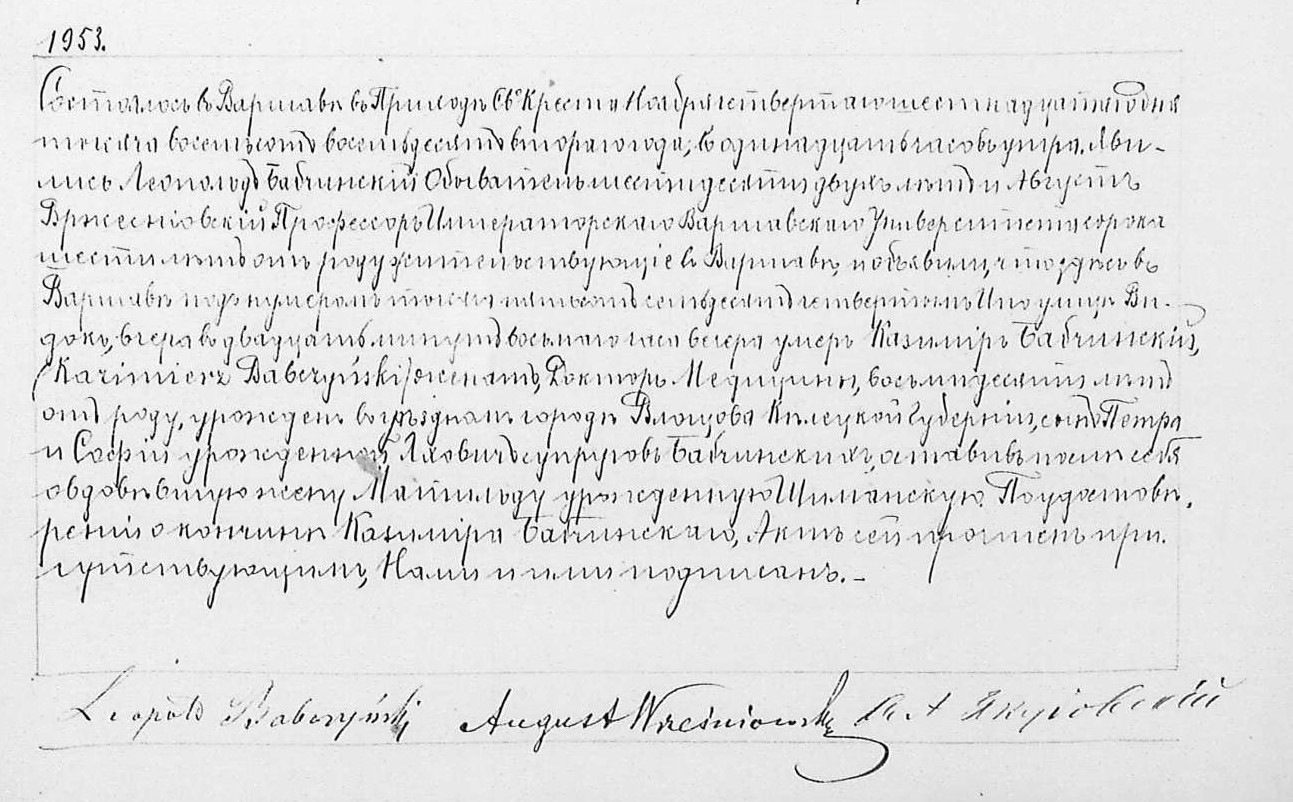 1953.
Состоялось въ Варшавѣ въ Приходѣ Св. Креста Ноября четвертаго шестнадцатаго дня
тысяча восемьсотъ восемьдесятъ втораго года, въ одинадцать часовъ утра. Яви-
лись Леопольдъ Бабчинскій Обыватель шестидесяти двухъ лѣтъ и Августъ
Вржесніовскій Профессоръ Императорскаго Варшавскаго Университета сорока
шести лѣтъ отъ роду жительствующіе въ Варшавѣ, и объявили, что здѣсь въ
Варшавѣ подъ нумеромъ тысяча пятьсотъ семьдесятъ четвертымъ И по улицѣ Ви-
докъ, вчера въ двадцать минутъ восьмаго часа вечера умеръ Казиміръ Бабчинскій,
/Kazimierz Babczyński/ женатъ, Докторъ Медицины, восьмидесяти лѣтъ
отъ роду, урожденъ въ уѣздномъ городѣ Влощова Кѣлецкой Губерніи, сынъ Петра
и Софіи урожденной Ляховичъ супруговъ Бабчинскихъ, оставивъ послѣ себя
овдовѣвшую жену Матильду урожденную Шиманскую. По удостовѣ-
реніи о кончинѣ Казиміра Бабчинскаго, Актъ сей прочтенъ при-
сутствующимъ, Нами и ими подписанъ. -
Leopold Babczyński August Wrześniowski